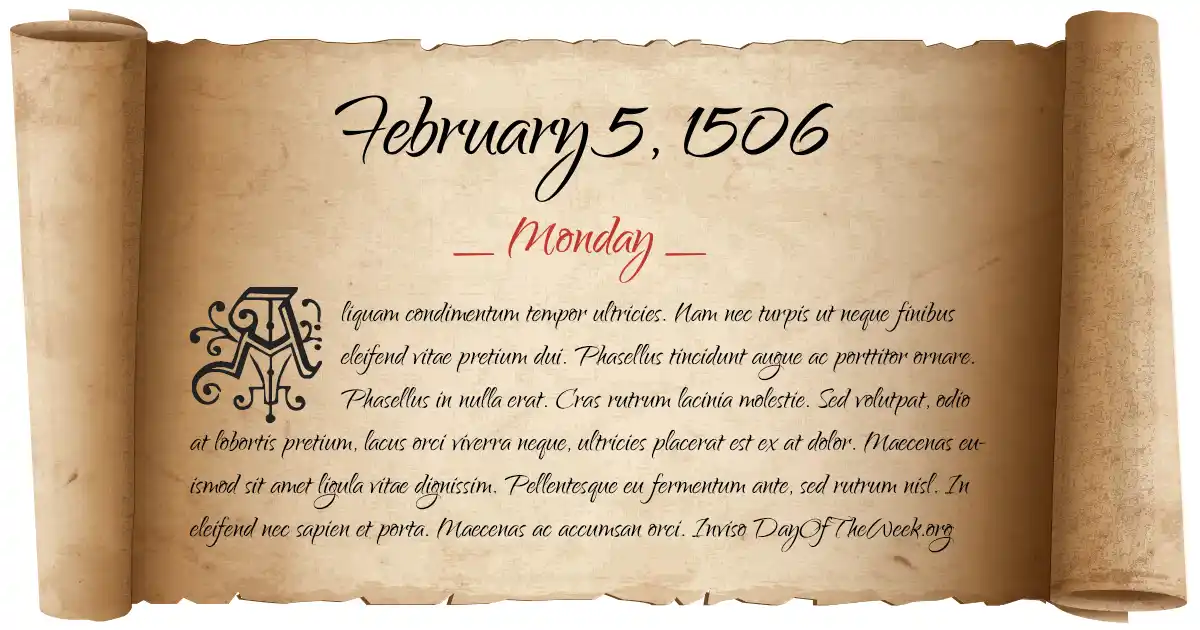 February 5, 1506
__ Monday __
Aliquam condimentum tempor ultricies. Nam nec turpis ut neque finibus
eleifend vitae pretium dui. Phasellus tincidunt augue ac porttitor ornare.
Phasellus in nulla erat. Cras rutrum lacinia molestie. Sed volutpat, odio
at lobortis pretium, lacus orci viverra neque, ultricies placerat est ex at dolor. Maecenas eu-
ismod sit amet ligula vitae dignissim. Pellentesque eu fermentum ante, sed rutrum nisl. In
eleifend nec sapien et porta. Maecenas ac accumsan orci. Inviso DayOfTheWeek.org